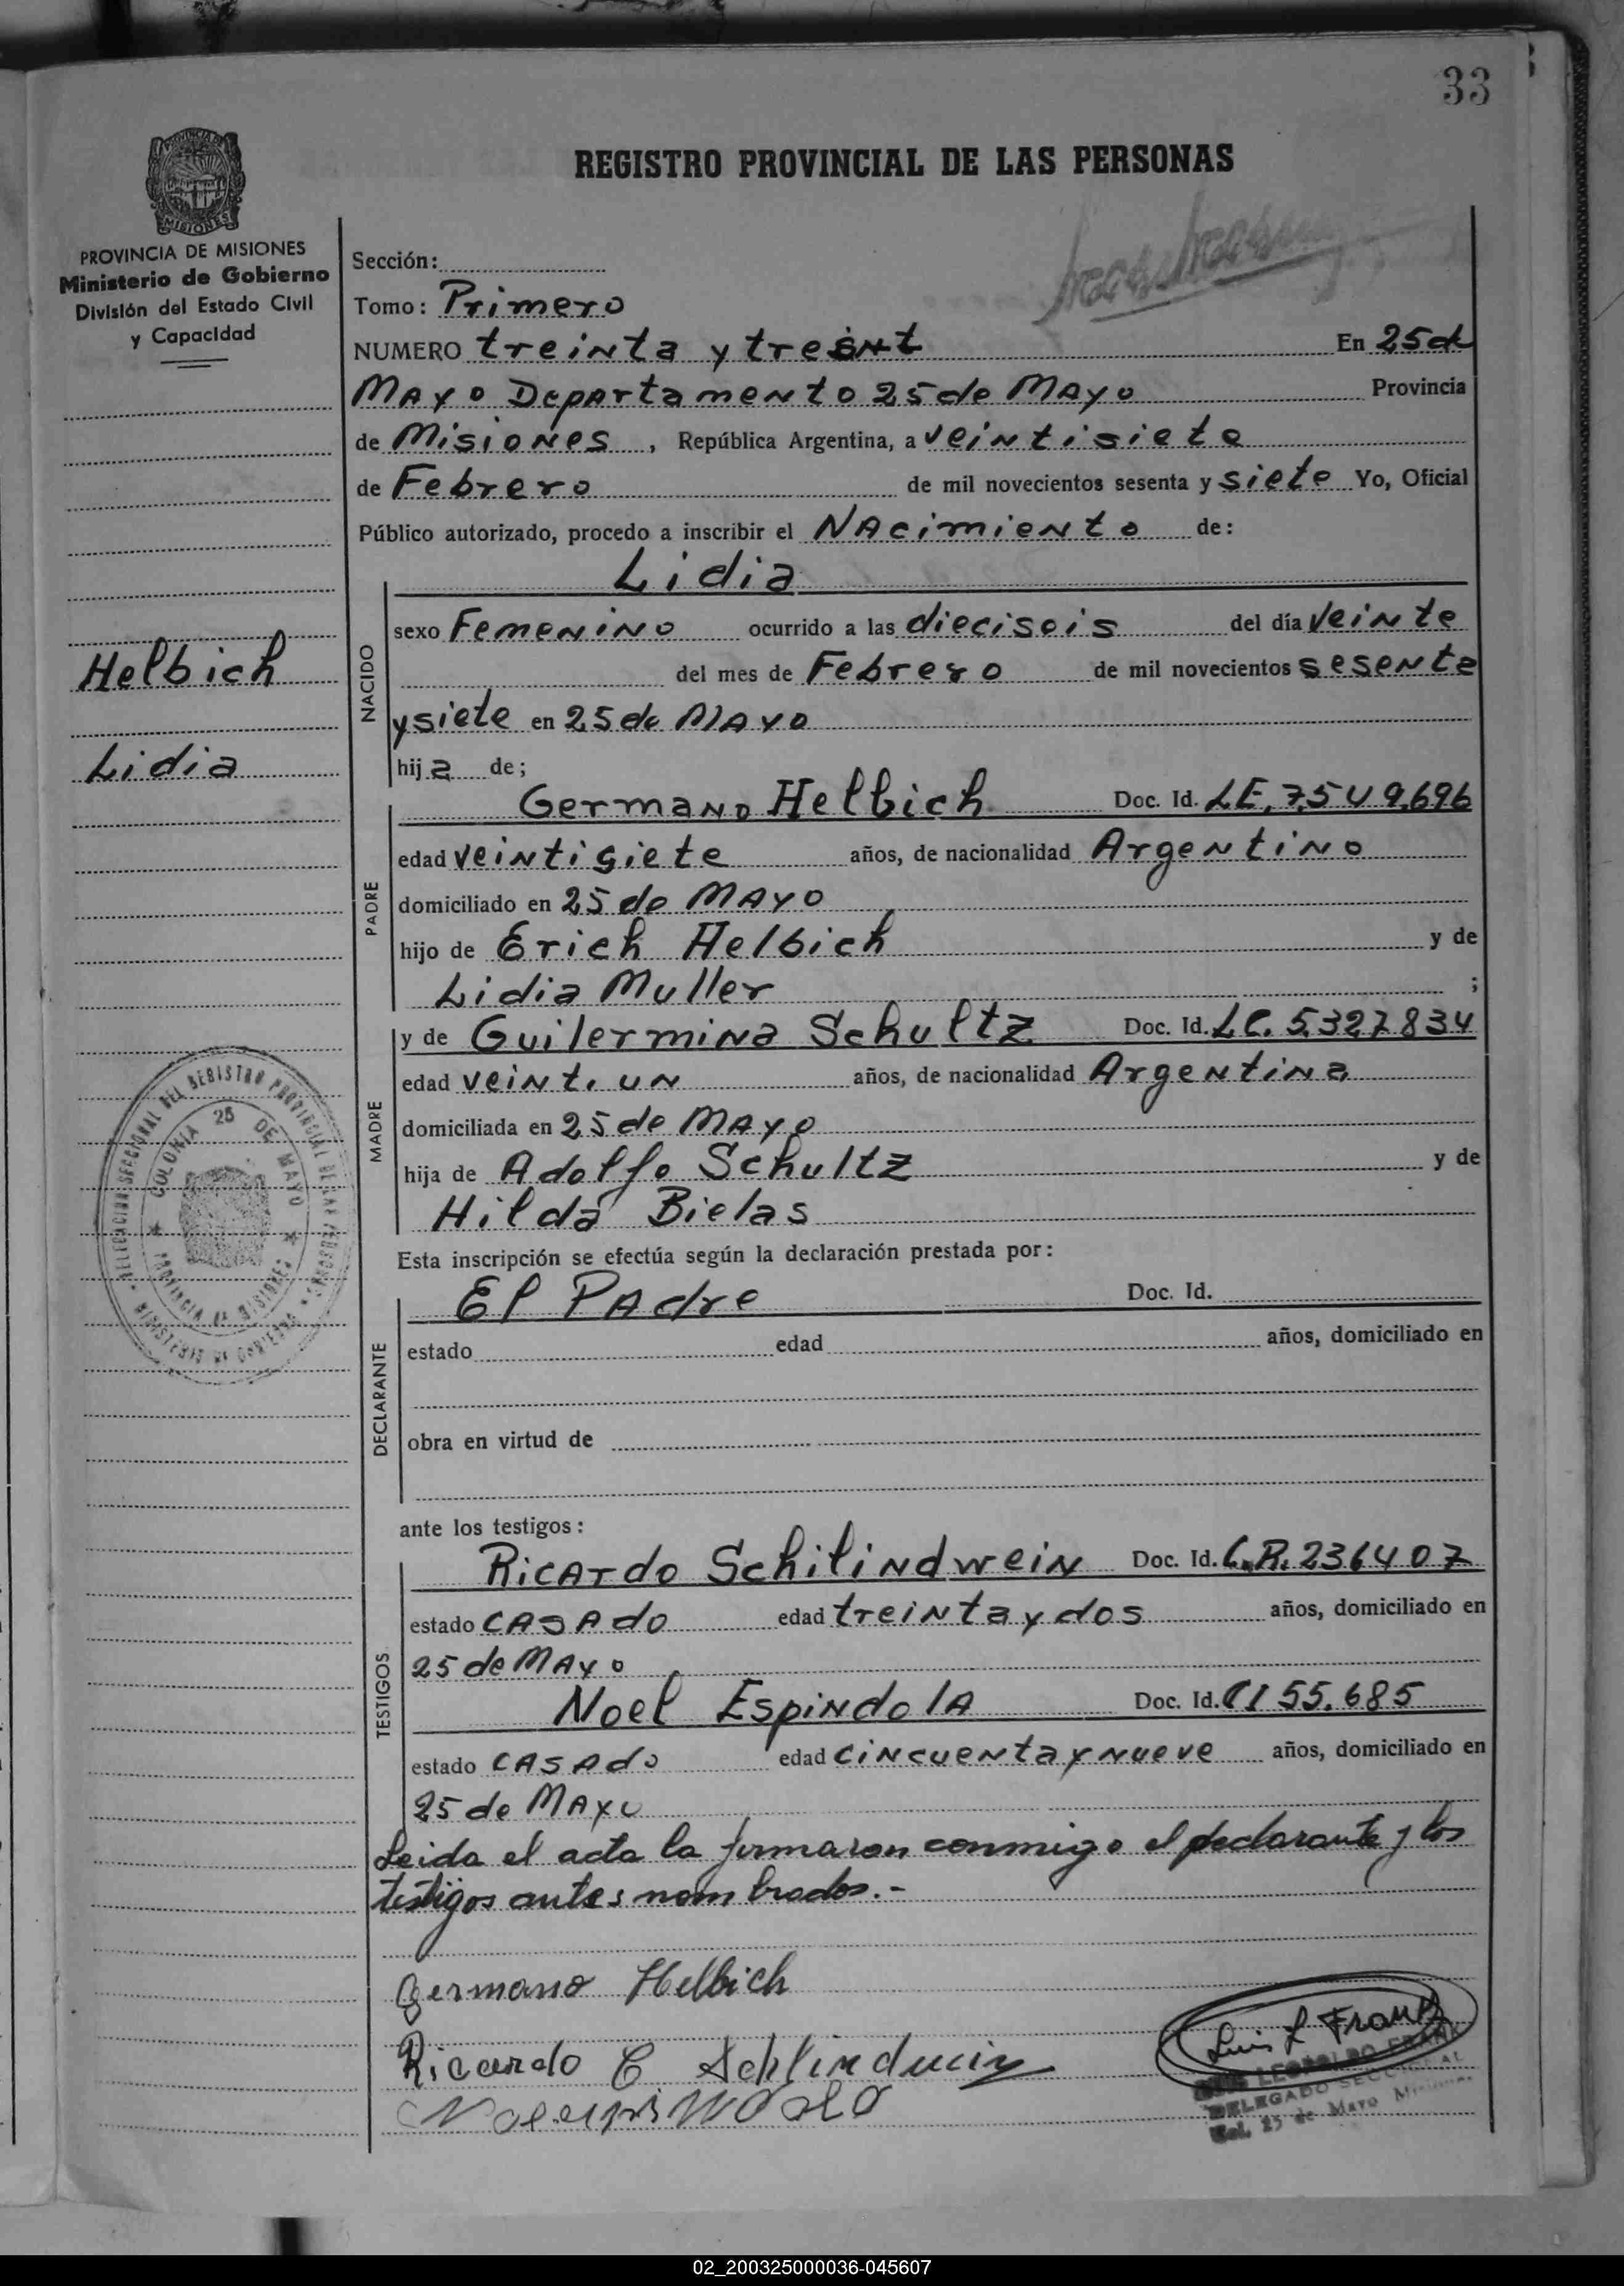 33
REGISTRO PROVINCIAL DE LAS PERSONAS
PROVINCIA DE MISIONES
Ministerio de Gobierno
División del Estado Civil
y Capacidad
Helbich
Lidia
DELEGACION SECCIONAL DEL REGISTRO PROVINCIAL DE LAS PERSONAS
MINISTERIO DE GOBIERNO
COLONIA 25 DE MAYO
PROVINCIA DE MISIONES
Sección:
Tomo: Primero
NUMERO treinta y tres En 25 de
Mayo Departamento 25 de Mayo Provincia
de Misiones, República Argentina, a veintisiete
de Febrero de mil novecientos sesenta y siete Yo, Oficial
Público autorizado, procedo a inscribir el Nacimiento de:
Lidia
NACIDO
sexo Femenino ocurrido a las dieciseis del día veinte
del mes de Febrero de mil novecientos sesenta
y siete en 25 de Mayo
hija de;
PADRE
Germano Helbich Doc. Id. LE. 7.549.696
edad veintisiete años, de nacionalidad Argentino
domiciliado en 25 de Mayo
hijo de Erich Helbich y de
Lidia Muller ;
MADRE
y de Guilermina Schultz Doc. Id. LC. 5.327834
edad veinti un años, de nacionalidad Argentina
domiciliada en 25 de Mayo
hija de Adolfo Schultz y de
Hilda Bielas
Esta inscripción se efectúa según la declaración prestada por:
DECLARANTE
El Padre Doc. Id.
estado edad años, domiciliado en
obra en virtud de
ante los testigos:
TESTIGOS
Ricardo Schilindwein Doc. Id. C.R. 236407
estado casado edad treinta y dos años, domiciliado en
25 de Mayo
Noel Espindola Doc. Id. CI 55.685
estado casado edad cincuenta y nueve años, domiciliado en
25 de Mayo
Leida el acta la firmaron conmigo el declarante y los
testigos antes nombrados.-
Germano Helbich
Ricardo C Schlindwein
Luis L Frank
LUIS LEOPOLDO FRANK
DELEGADO SECCIONAL
Col. 25 de Mayo Misiones
02_200325000036-045607